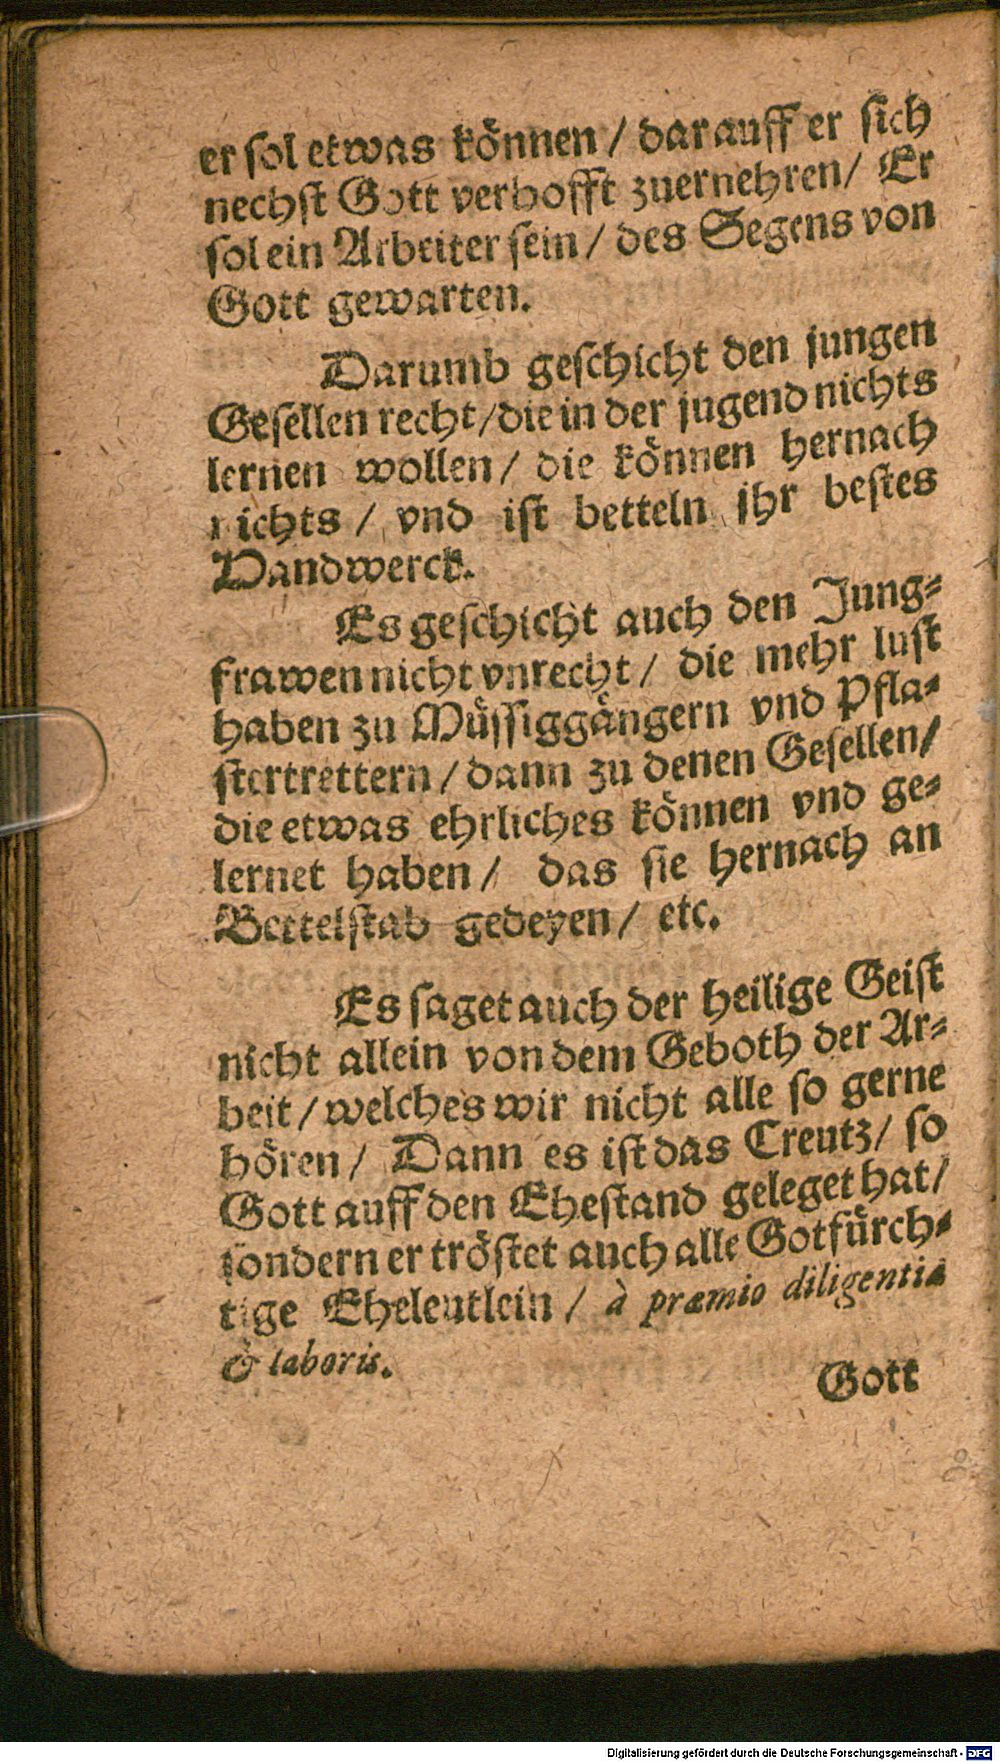 er sol etwas können / darauff er sich
nechst Gott verhofft zuernehren / Er
sol ein Arbeiter sein / des Segens von
Gott gewarten.
Darumb geschicht den jungen
Gesellen recht / die in der jugend nichts
lernen wollen / die können hernach
nichts / vnd ist betteln jhr bestes
Handwerck.
Es geschicht auch den Jung-
frawen nicht vnrecht / die mehr lust
haben zu Müssiggängern vnd Pfla-
stertrettern / dann zu denen Gesellen /
die etwas ehrliches können vnd ge-
lernet haben / das sie hernach an
Bettelstab gedeyen / etc.
Es saget auch der heilige Geist
nicht allein von dem Geboth der Ar-
beit / welches wir nicht alle so gerne
hören / Dann es ist das Creutz / so
Gott auff den Ehestand geleget hat /
sondern er tröstet auch alle Gotfürch-
tige Eheleutlein / à præmio diligentiæ
& laboris.
Gott
Digitalisierung gefördert durch die Deutsche Forschungsgemeinschaft - DFG